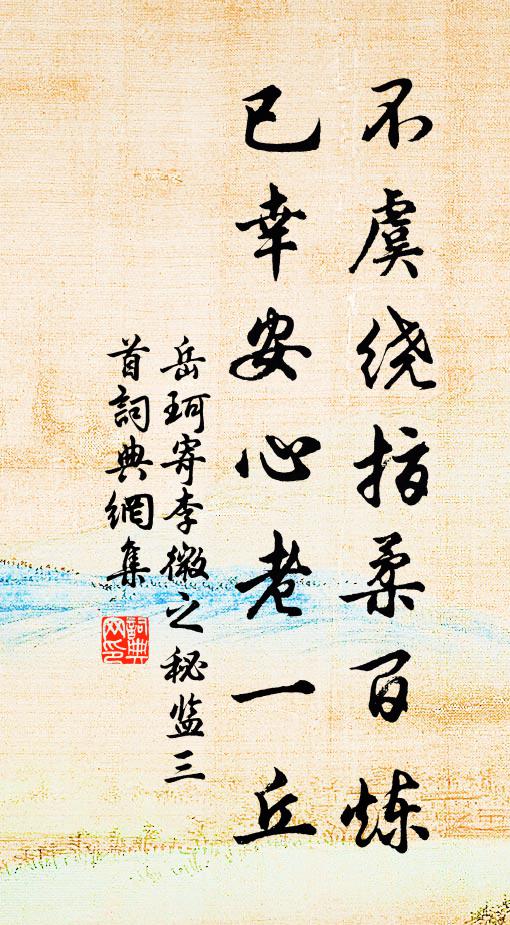 不虞绕指柔百炼
已幸安心老一丘
岳珂寄李微之秘监三
首詞典網集
詞典
网印